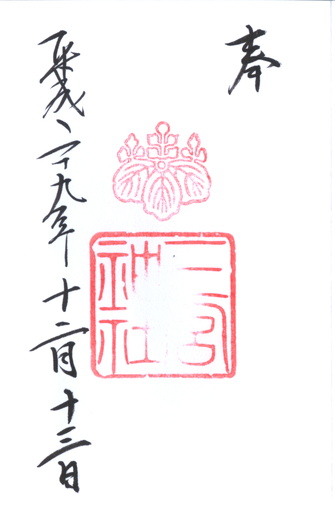 奉
三宮
神社
平成二十九年十二月十三日